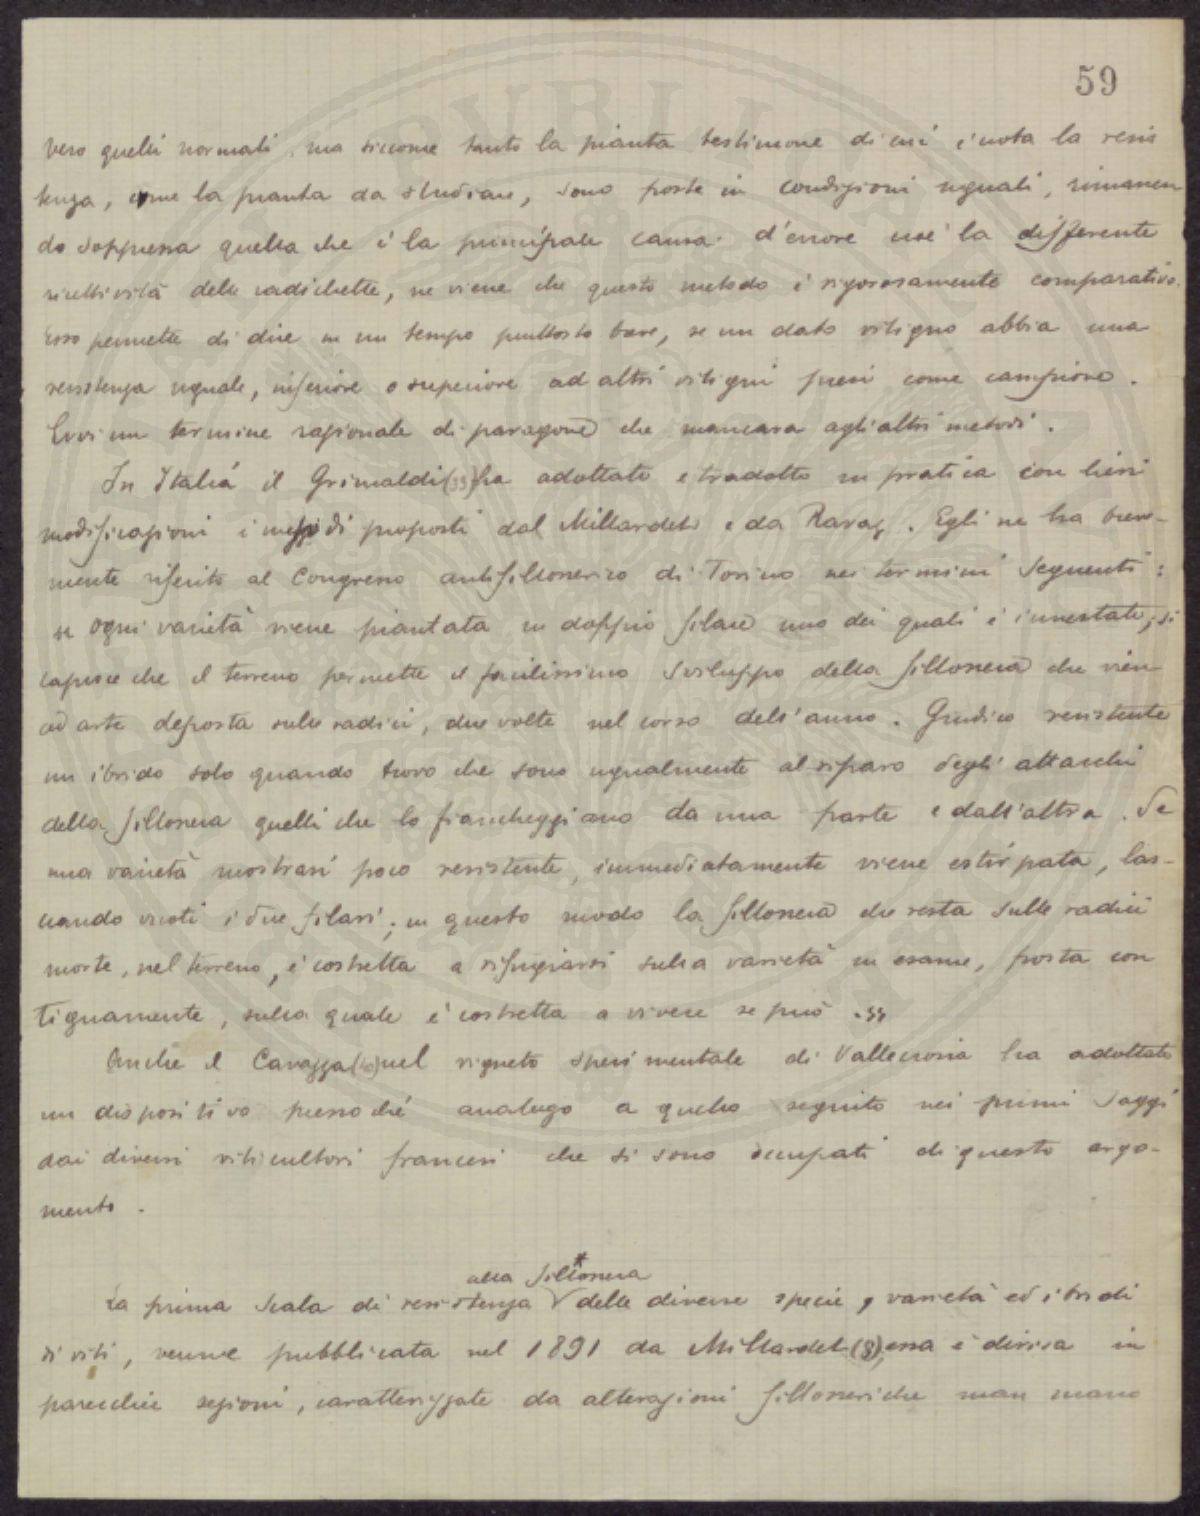 59
vero quelli normali, ma siccome tanto la pianta testimone di cui è nota la resis
tenza, come la pianta da studiare, sono poste in condizioni uguali, rimanen
do soppressa quella che è la principale causa d'errore cioè la differente
ricettività delle radichette, ne viene che questo metodo è rigorosamente comparativo.
Esso permette di dire in un tempo piuttosto breve, se un dato vitigno abbia una
resistenza uguale, inferiore o superiore ad altri vitigni presi come campione.
Evvi un termine razionale di paragone che mancava agli altri metodi.
In Italia il Grimaldi (39) ha adottato e tradotto in pratica con lievi
modificazioni i metodi proposti dal Millardet e da Ravaz. Egli ne ha breve-
mente riferito al Congresso antifillosserico di Torino nei termini seguenti:
se ogni varietà viene piantata in doppio filare uno dei quali è innestato, si
capisce che il terreno permette il facilissimo sviluppo della fillossera che vien
ad arte deposta sulle radici, due volte nel corso dell'anno. Giudico resistente
un ibrido solo quando trovo che sono ugualmente al riparo degli attacchi
della fillossera quelli che lo fiancheggiano da una parte e dall'altra. Se
una varietà mostrasi poco resistente, immediatamente viene estirpata, las-
ciando vuoti i due filari; in questo modo la fillossera che resta sulle radici
morte, nel terreno, è costretta a rifugiarsi sulla varietà in esame, posta con
tiguamente, sulla quale è costretta a vivere se può. "
Anche il Cavazza (40) nel vigneto sperimentale di Vallecrosia ha adottato
un dispositivo pressochè analogo a quello seguito nei primi saggi
dai diversi viticultori francesi che si sono occupati di questo argo-
mento.
alla fillossera
La prima scala di resistenza delle diverse specie, varietà ed ibridi
di viti, venne pubblicata nel 1891 da Millardet (8), essa è divisa in
parecchie sezioni, caratterizzate da alterazioni fillosseriche man mano